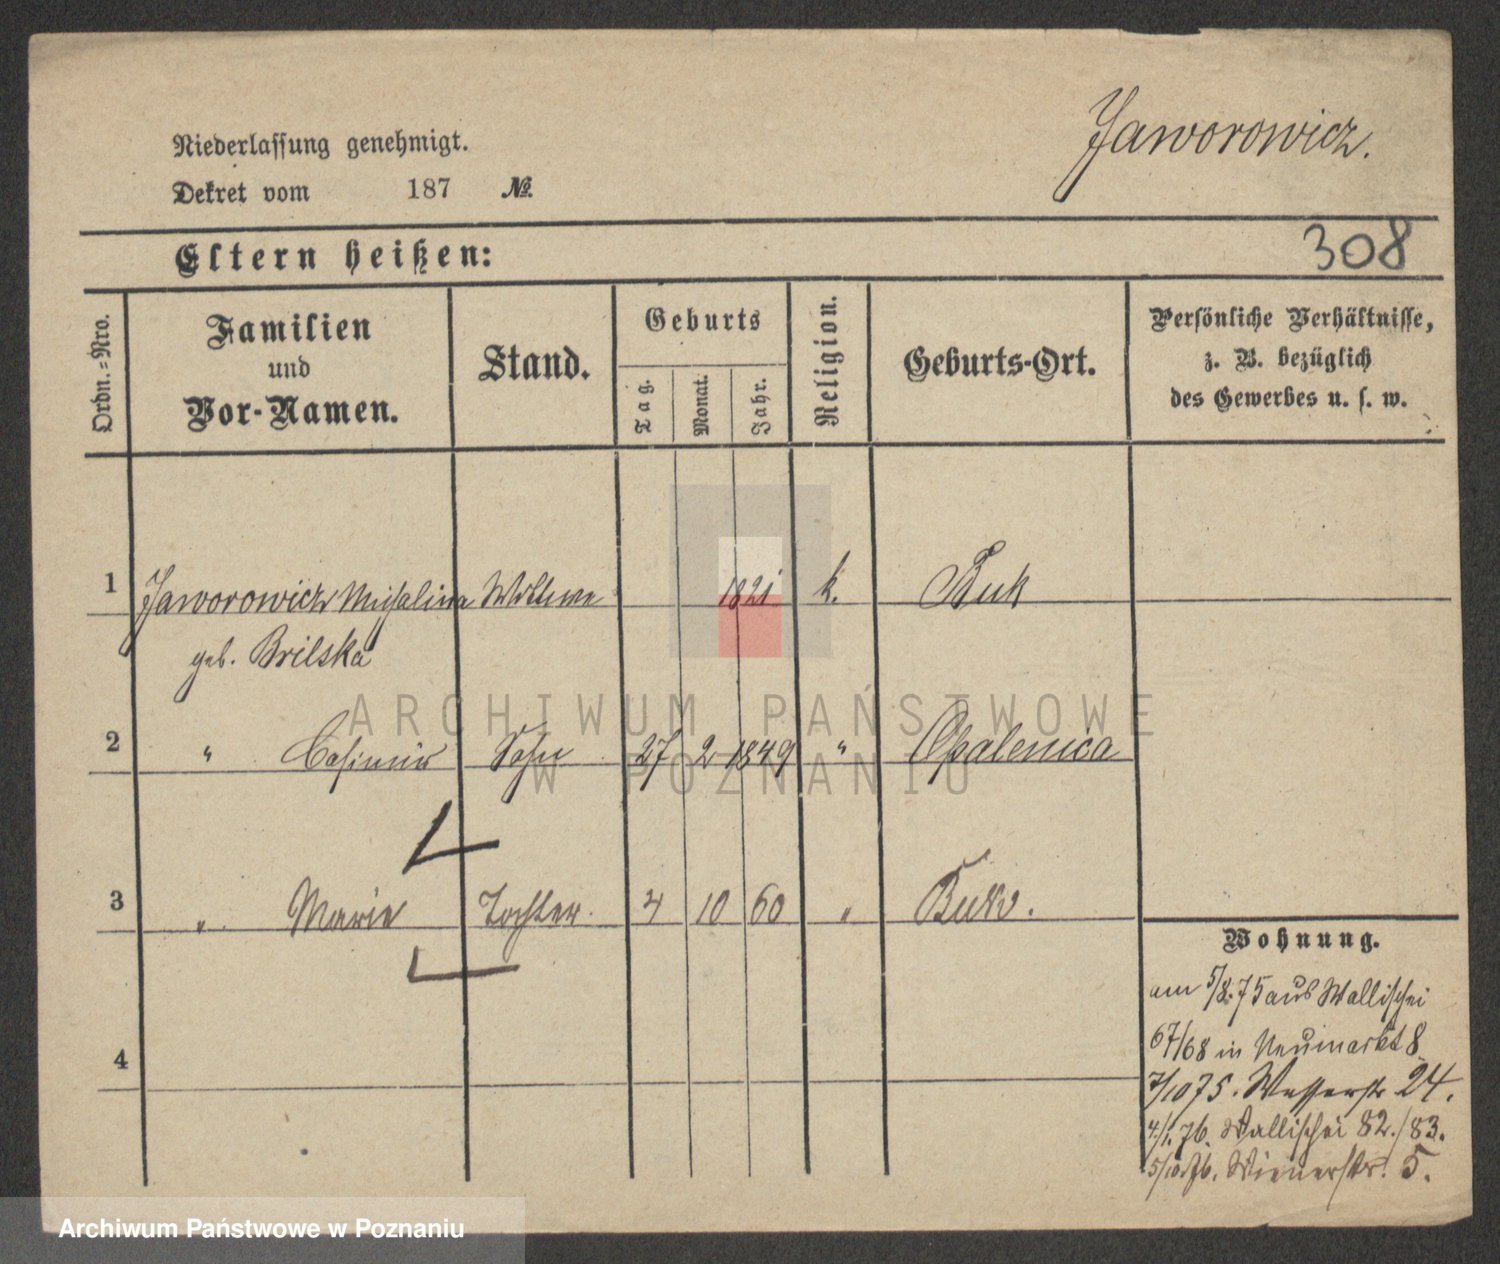 Jaworowicz.
Niederlassung genehmigt.
Dekret vom 187 №
308
Eltern heißen:
Ordn.=Nro.
Familien
und
Vor-Namen.
Stand.
Geburts
Tag.
Monat.
Jahr.
Religion.
Geburts-Ort.
Persönliche Verhältnisse,
z. B. bezüglich
des Gewerbes u. s. w.
1 Jaworowicz Michalina Wittwe 1821 k. Buk
geb. Brilska
2 " Casimir Sohn 27 2 1849 " Opalenica
3 " Marie Tochter. 4 10 60 " Buk.
4
Wohnung.
am 5/8.75 aus Wallischei
67/68 in Neumarkt 8
7/10 75. Wasserstr 24.
4/1. 76. Wallischei 82./83.
5/10.76. Wienerstr. 5.
ARCHIWUM PAŃSTWOWE
W POZNANIU
Archiwum Państwowe w Poznaniu